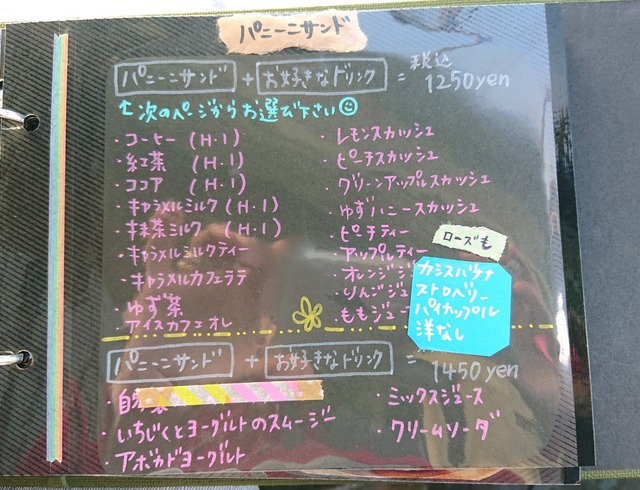 パニーニサンド
パニーニサンド + お好きなドリンク = 税込 1250yen
↑次のページからお選び下さい☺
・コーヒー (H・I)
・紅茶 (H・I)
・ココア (H・I)
・キャラメルミルク (H・I)
・抹茶ミルク (H・I)
・キャラメルミルクティー
・キャラメルカフェラテ
・ゆず茶
・アイスカフェオレ
・レモンスカッシュ
・ピーチスカッシュ
・グリーンアップルスカッシュ
・ゆずハニースカッシュ
・ピーチティー
・アップルティー
・オレンジジ
・りんごジュ
・ももジュー
ローズも
カシスバナナ
ストロベリー
パイナップル
洋なし
パニーニサンド + お好きなドリンク = 1450yen
・いちじくとヨーグルトのスムージー
・アボカドヨーグルト
・ミックスジュース
・クリームソーダ